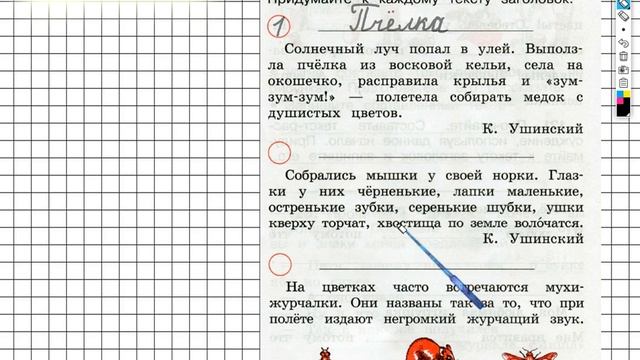 Придумайте к каждому тексту заголовок.
1 Пчёлка
Солнечный луч попал в улей. Выполз-
ла пчёлка из восковой кельи, села на
окошечко, расправила крылья и «зум-
зум-зум!» — полетела собирать медок с
душистых цветов.
К. Ушинский
Собрались мышки у своей норки. Глаз-
ки у них чёрненькие, лапки маленькие,
остренькие зубки, серенькие шубки, ушки
кверху торчат, хвостища по земле воло́чатся.
К. Ушинский
На цветках часто встречаются мухи-
журчалки. Они названы так за то, что при
полёте издают негромкий журчащий звук.